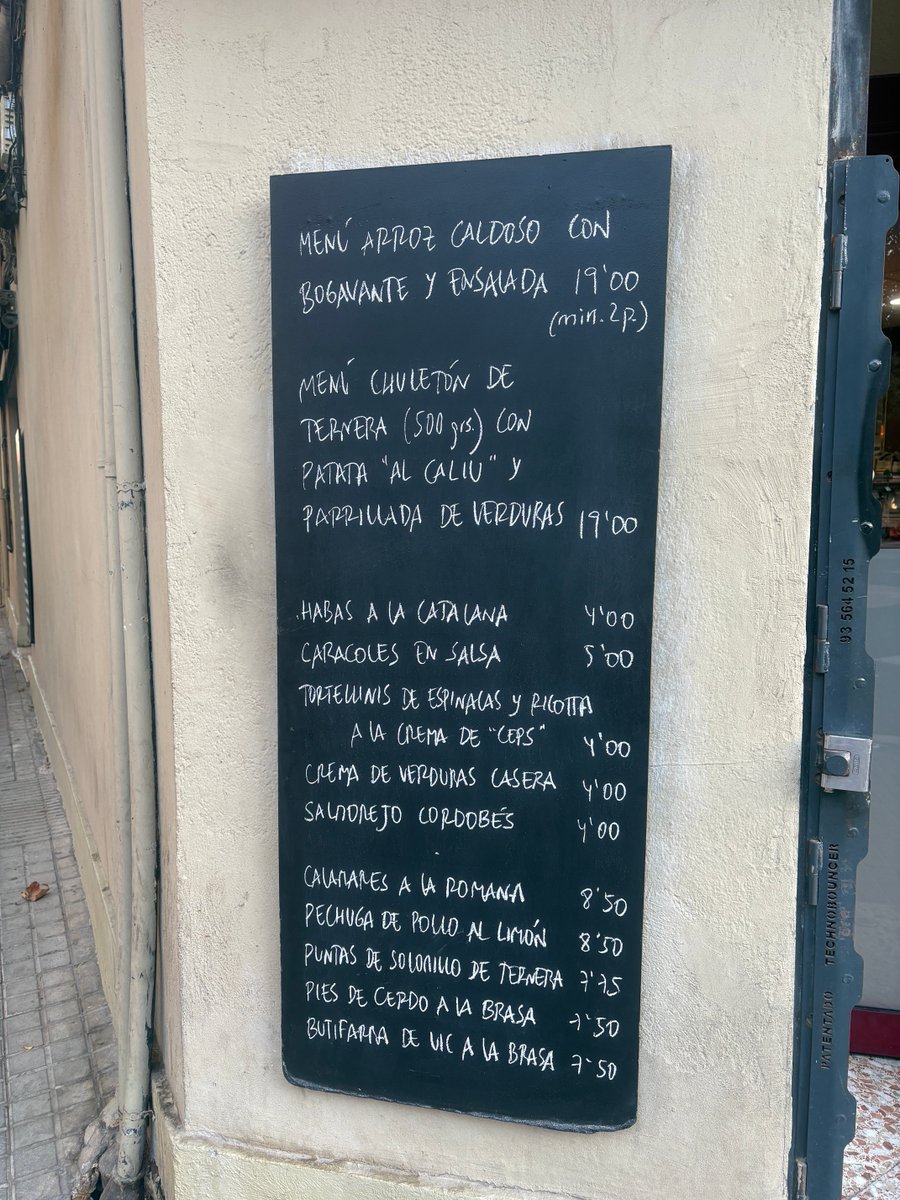 MENÚ ARROZ CALDOSO CON
BOGAVANTE Y ENSALADA 19'00
(min. 2p.)
MENÚ CHULETÓN DE
TERNERA (500 grs.) CON
PATATA "AL CALIU" Y
PARRILLADA DE VERDURAS 19'00
HABAS A LA CATALANA 4'00
CARACOLES EN SALSA 5'00
TORTELLINIS DE ESPINACAS Y RICOTTA
A LA CREMA DE "CEPS" 4'00
CREMA DE VERDURAS CASERA 4'00
SALMOREJO CORDOBÉS 4'00
CALAMARES A LA ROMANA 8'50
PECHUGA DE POLLO AL LIMÓN 8'50
PUNTAS DE SOLOMILLO DE TERNERA 7'75
PIES DE CERDO A LA BRASA 7'50
BUTIFARRA DE VIC A LA BRASA 7'50
93 564 52 15
TECHNOBOUNCER
PATENTADO